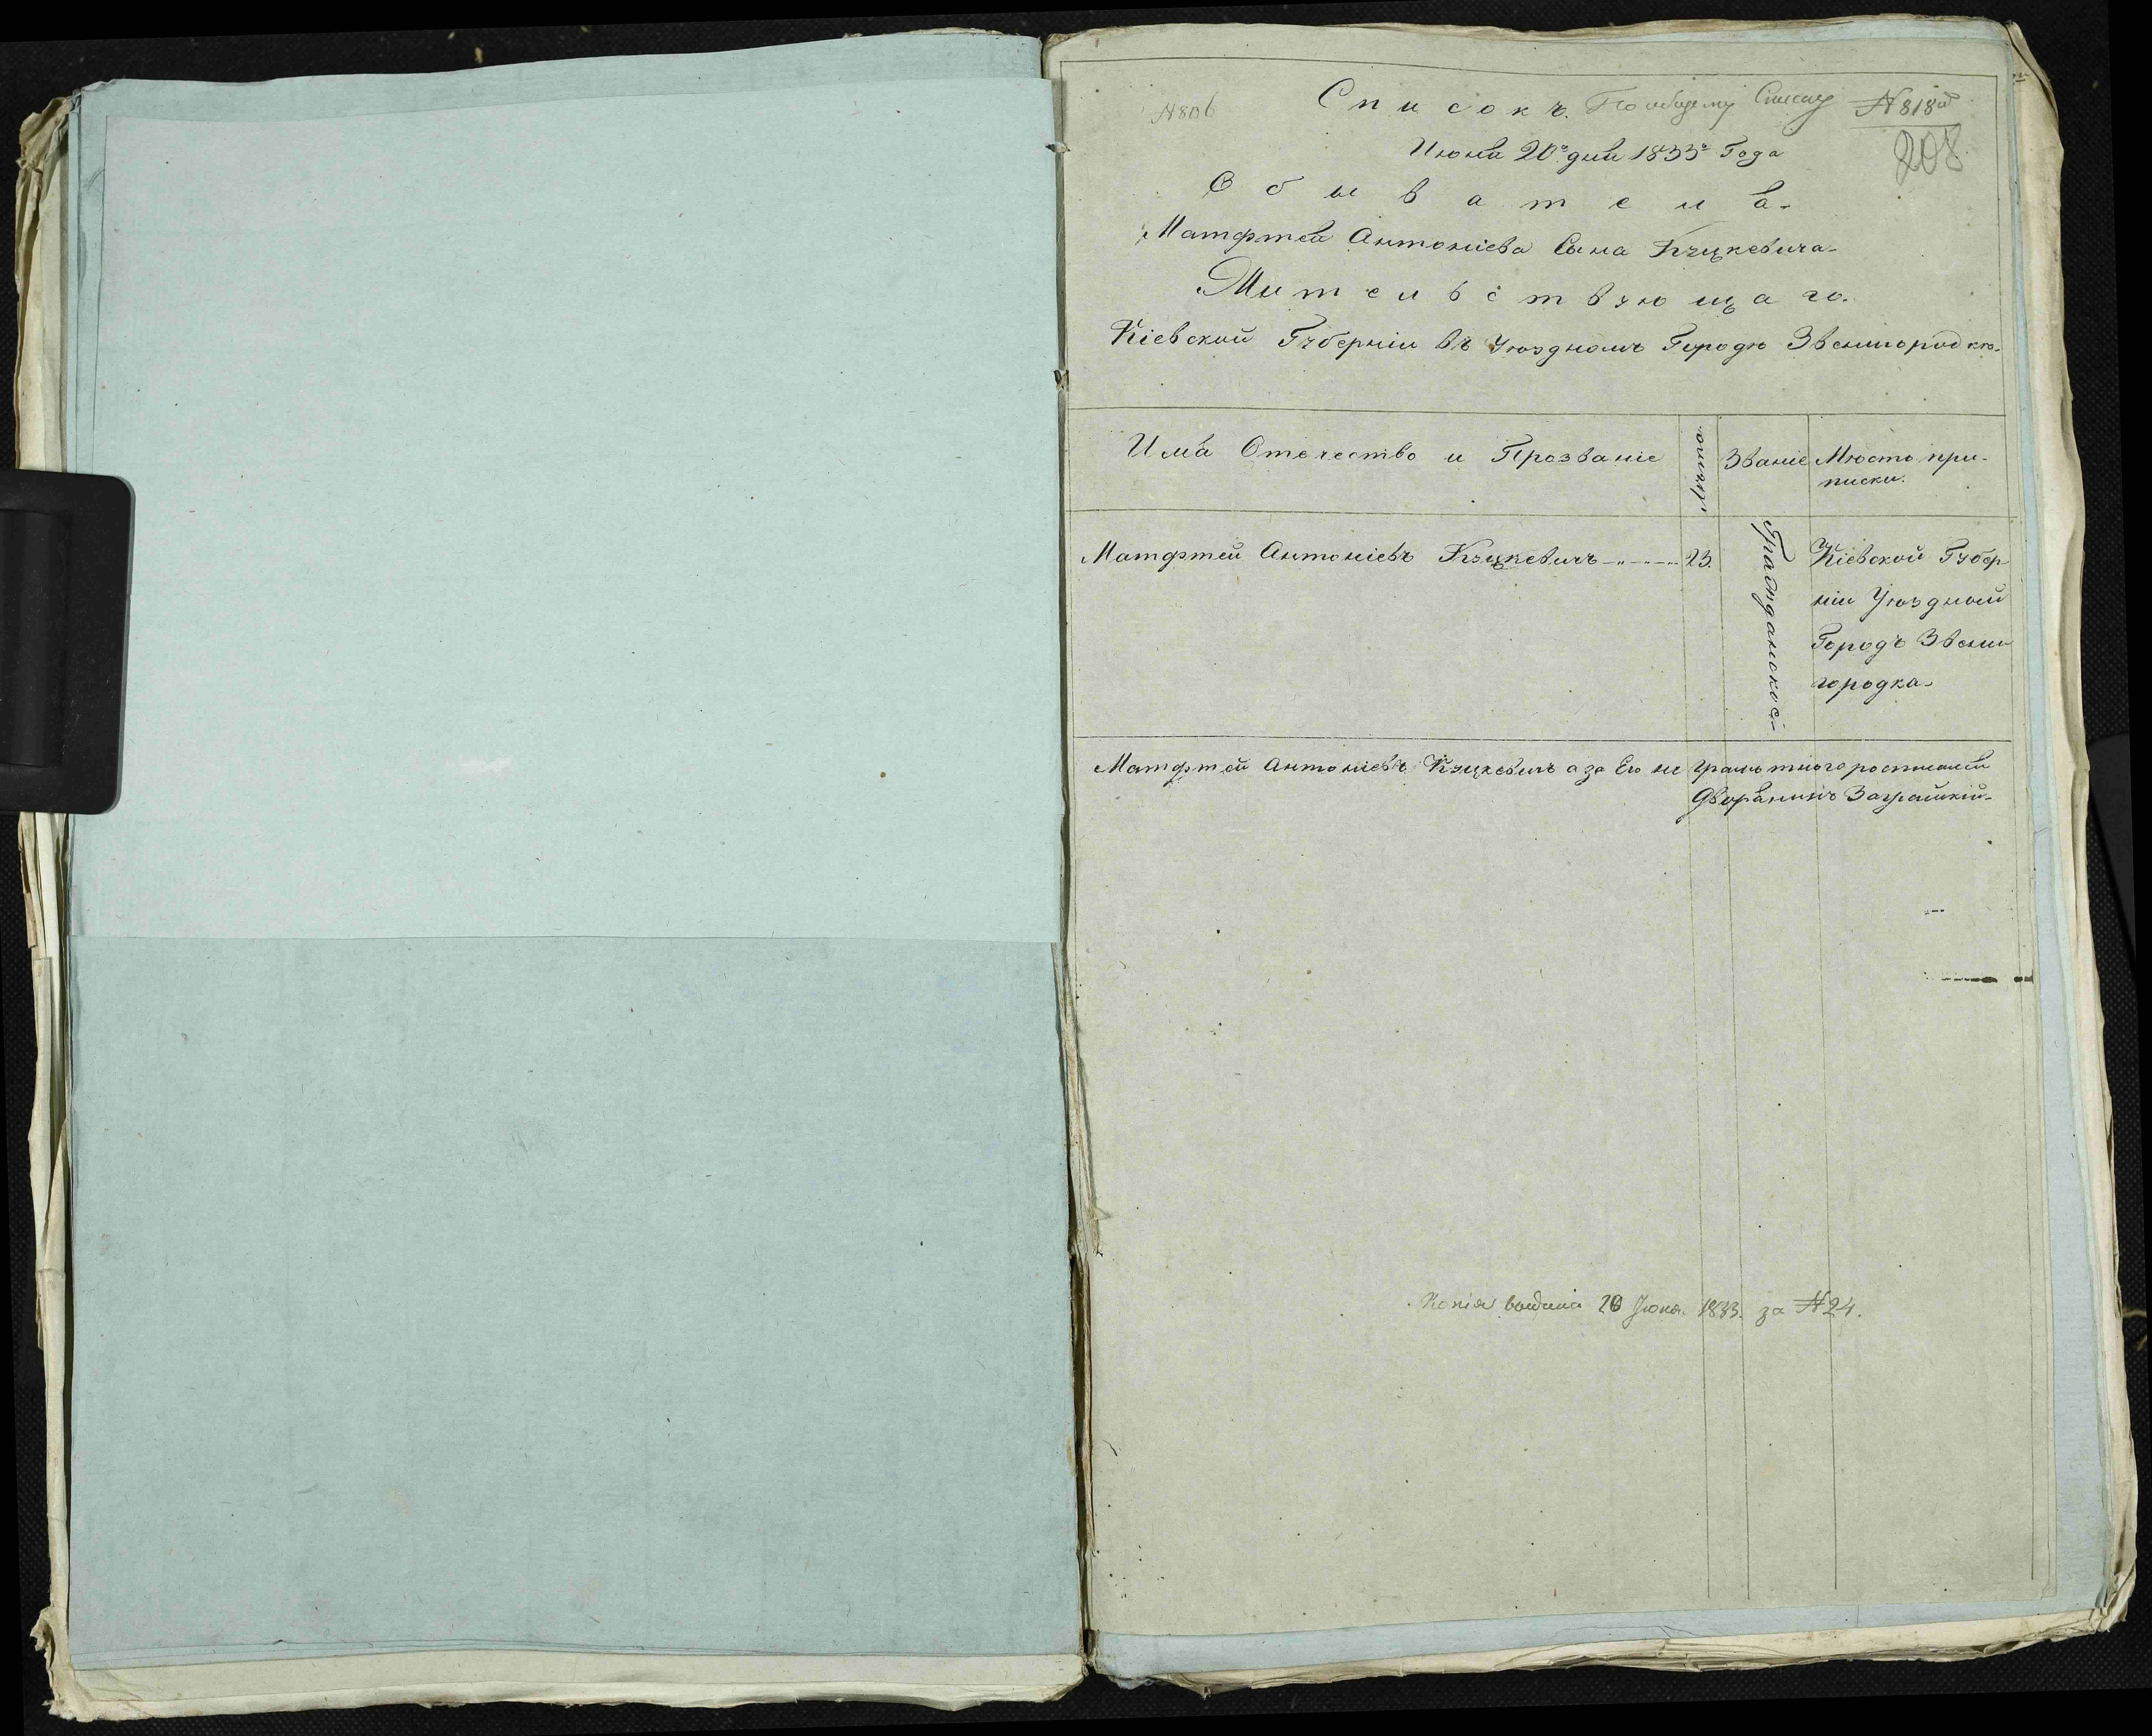 N806
Списокъ. По общему Списку N 818й
208
Июня 20го дня 1833го Года
Обывателя.
Матфтей Антоніева Сына Куцкевича.
Жительствующаго.
Кіевской Губерніи въ Уѣздномъ Городѣ Звенигородкѣ.
Имя Отечество и Прозваніе Лѣта. Званіе Мѣсто при-
писки.
Матфтей Антоніевъ Куцкевичъ 23. Гражданское Кіевской Губер
ніи Уѣздной
Городъ Звени
городка.
Матфтей Антоніевъ Куцкевичъ а за Его не грамотного росписался
Дворянинъ
Копія выдана 20 Июня 1833. за N 24.